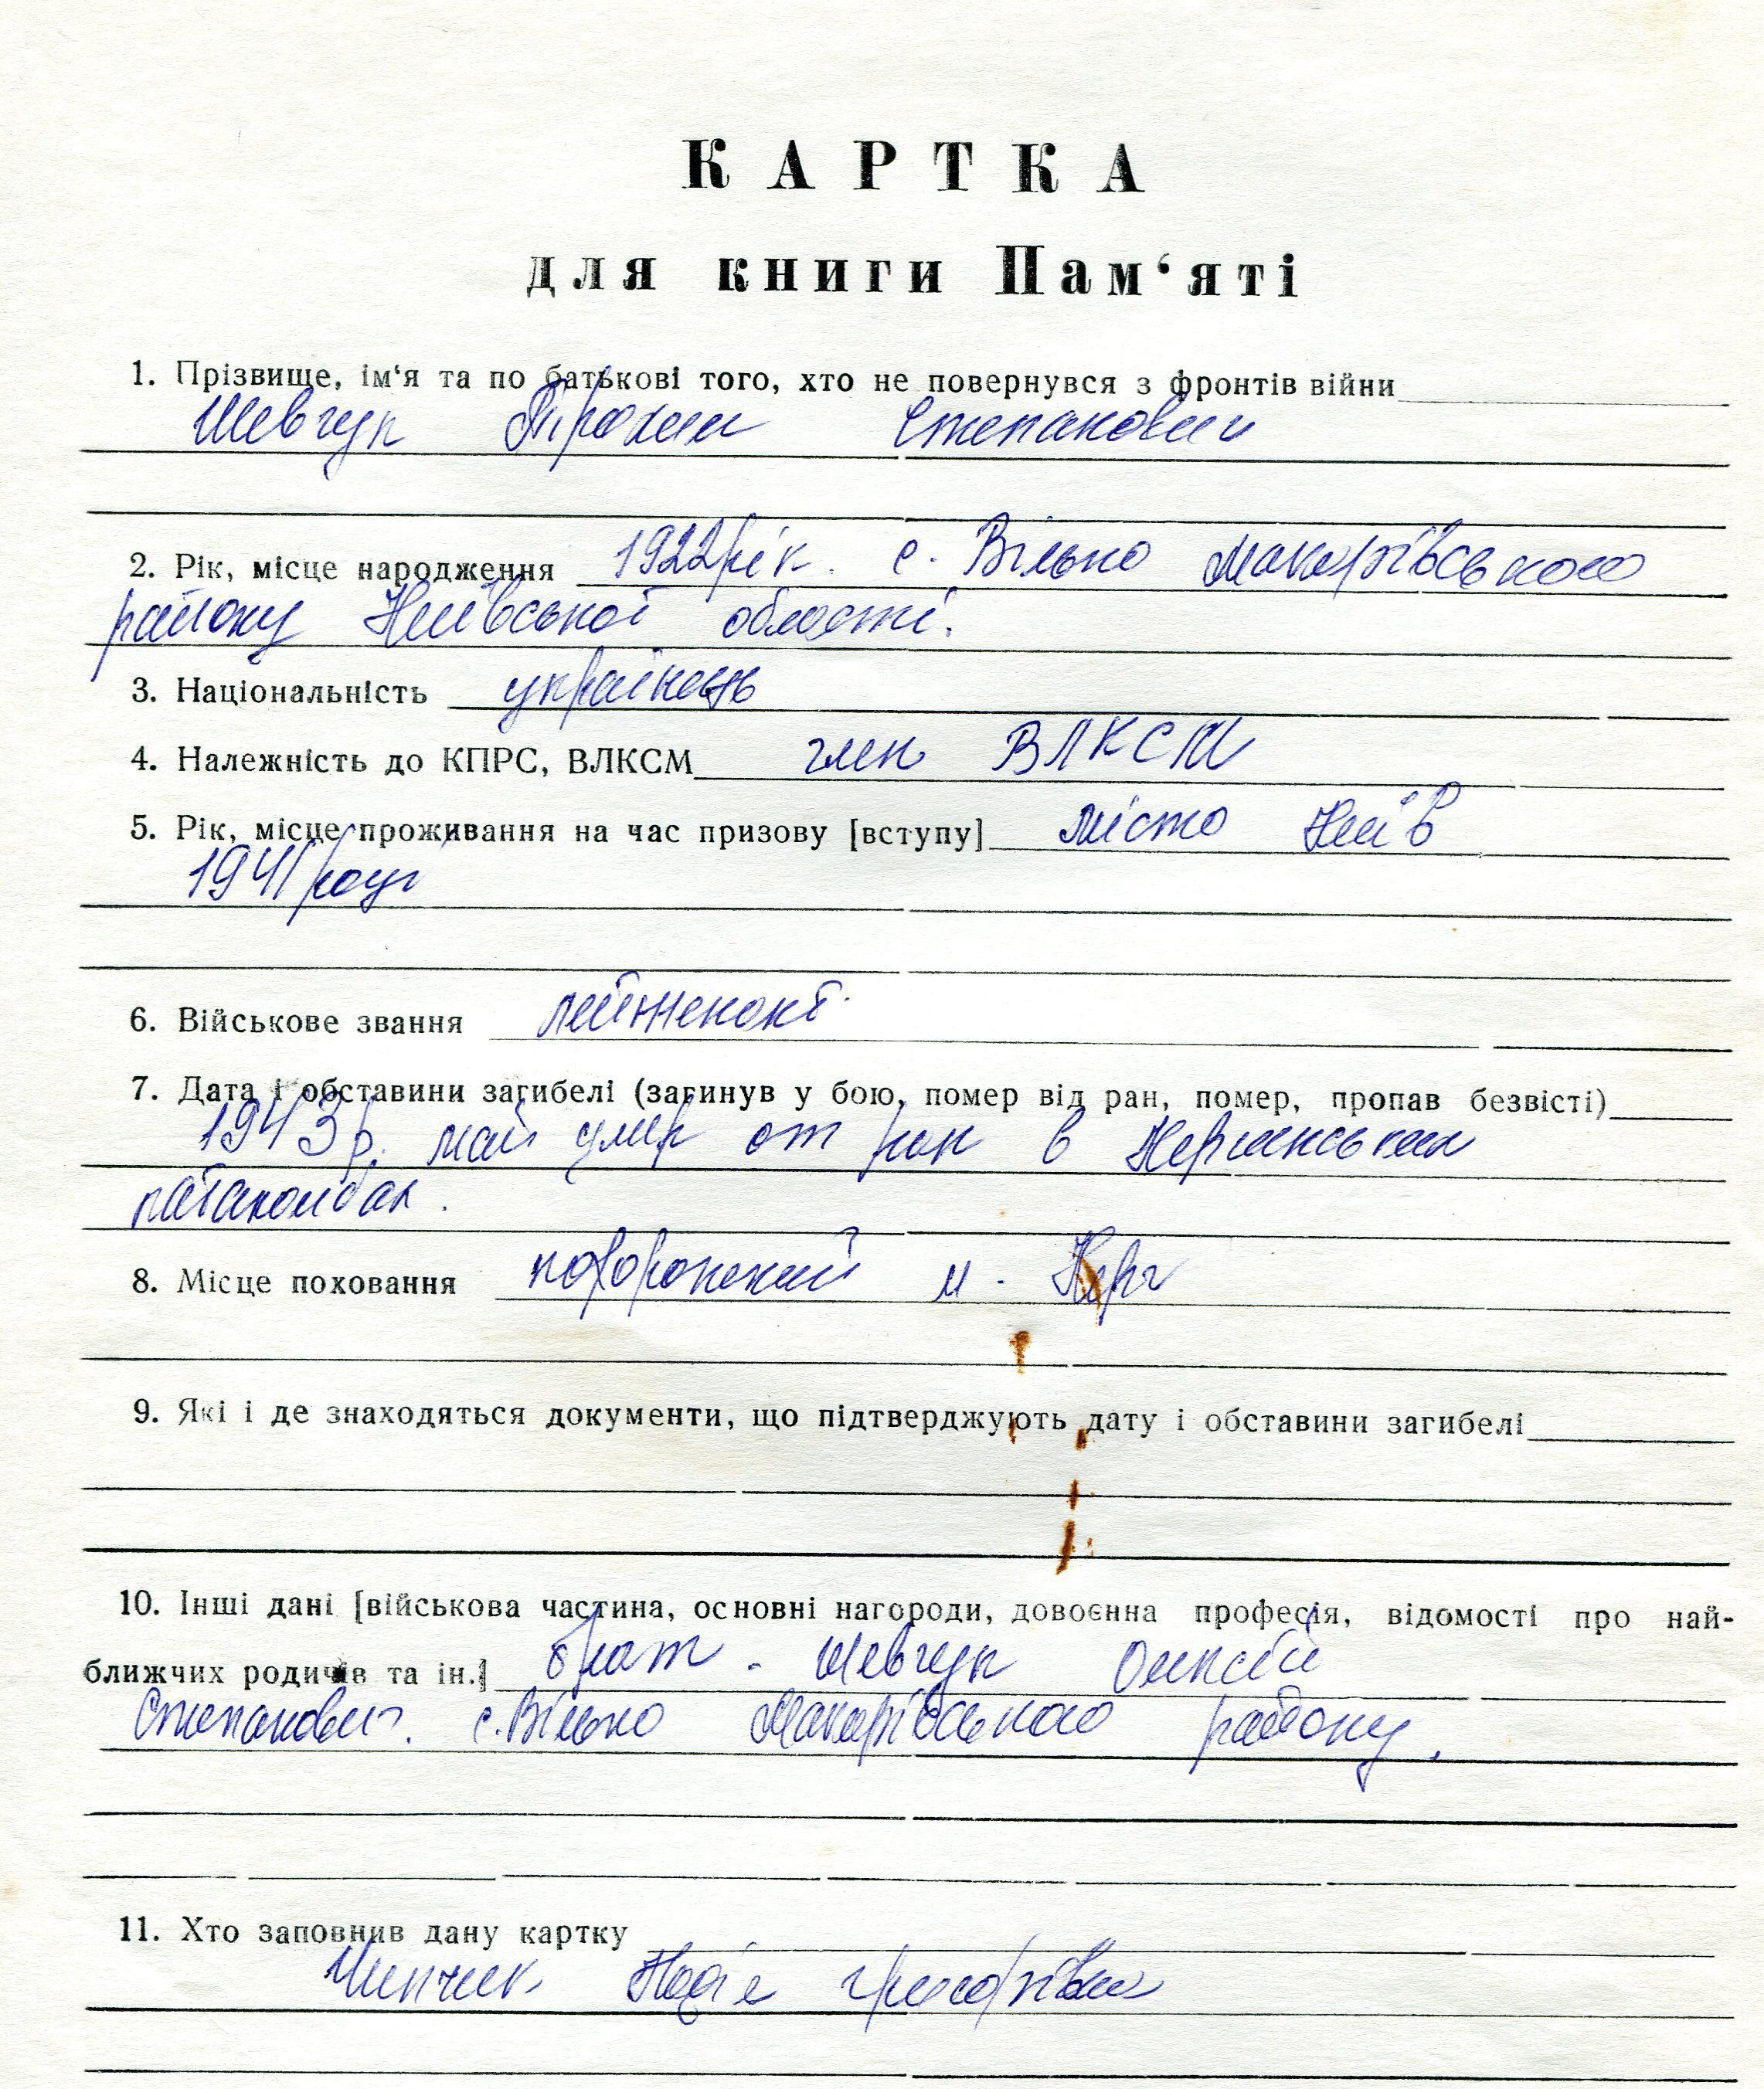 КАРТКА
для книги Пам‘яті
1. Прізвище, ім‘я та по батькові того, хто не повернувся з фронтів війни
Шевчук Трохим Степанович
2. Рік, місце народження 1922 рік. с. Вільно Макарівського
району Київської області.
3. Національність українець
4. Належність до КПРС, ВЛКСМ член ВЛКСМ
5. Рік, місце проживання на час призову [вступу] місто Київ
1941 році
6. Військове звання
7. Дата і обставини загибелі (загинув у бою, помер від ран, помер, пропав безвісті)
1943 р. май умер от ран в
8. Місце поховання м.
9. Які і де знаходяться документи, що підтверджують дату і обставини загибелі
10. Інші дані [військова частина, основні нагороди, довоєнна професія, відомості про най-
ближчих родичів та ін.] брат - Шевчук Олксій
Степанович. с. Вільно Макарівського району.
11. Хто заповнив дану картку
Надія